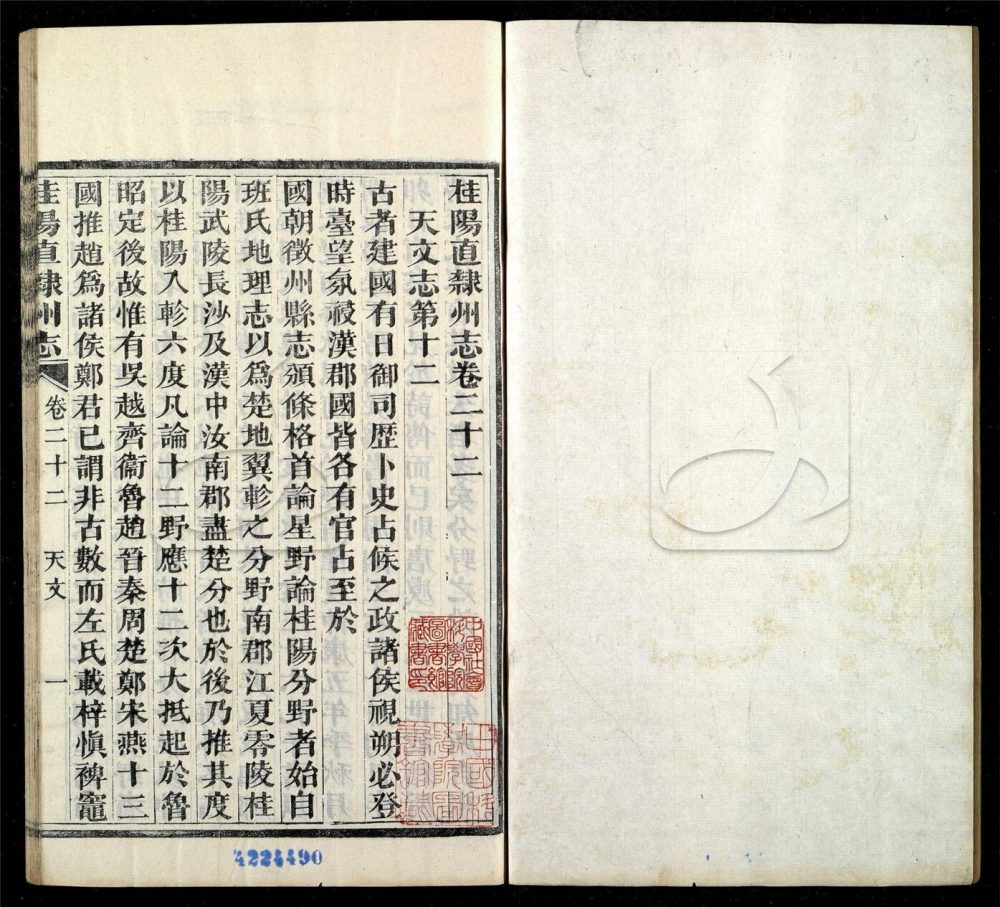 桂陽直隸州志卷二十二
天文志第十二
古者建國有日御司歴卜史占候之政諸侯視朔必登
時臺望氛祲漢郡國皆各有官占至於
國朝徵州縣志頒條格首論星野論桂陽分野者始自
班氏地理志以爲楚地翼軫之分野南郡江夏零陵桂
陽武陵長沙及漢中汝南郡盡楚分也於後乃推其度
以桂陽入軫六度凡論十二野應十二次大抵起於魯
昭定後故惟有吳越齊衞魯趙晉秦周楚鄭宋燕十三
國推趙爲諸侯鄭君已謂非古數而左氏載梓愼禆竈
桂陽直隸州志
卷二十二
天文
一
中國社會
科學院
圖書館
藏書印
中國科
學院圖
書館藏
4224490